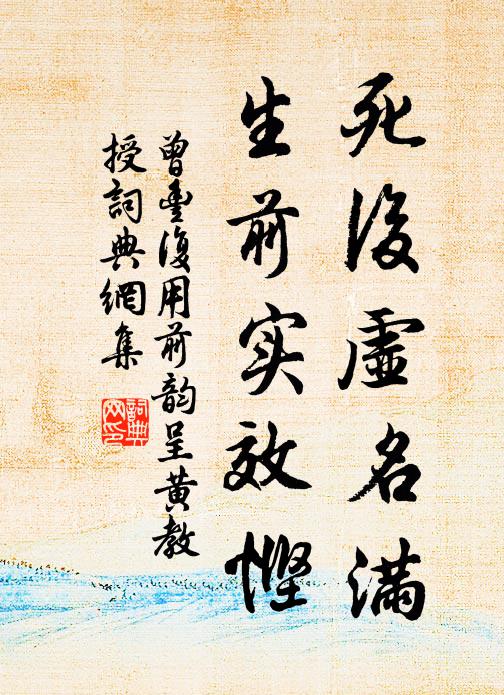 死後虛名滿
生前实效悭
曾豐復用前韵呈黄教
授詞典網集
詞典
网印